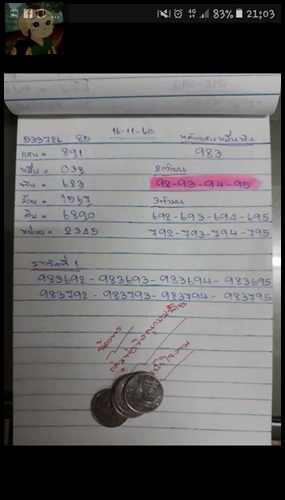 83% 21:03
533726 85 16-11-60 หลักแสนหมื่นพัน
แสน = 891 983
หมื่น = 023 2ตัวบน
พัน = 623 92-93-94-95
ร้อย = 1567 3ตัวบน
สิบ = 6890 692-693-694-695
หน่วย = 2345 792-793-794-795
รางวัลที่ 1
983692 - 983693 - 983694 - 983695
983792 - 983793 - 983794 - 983795